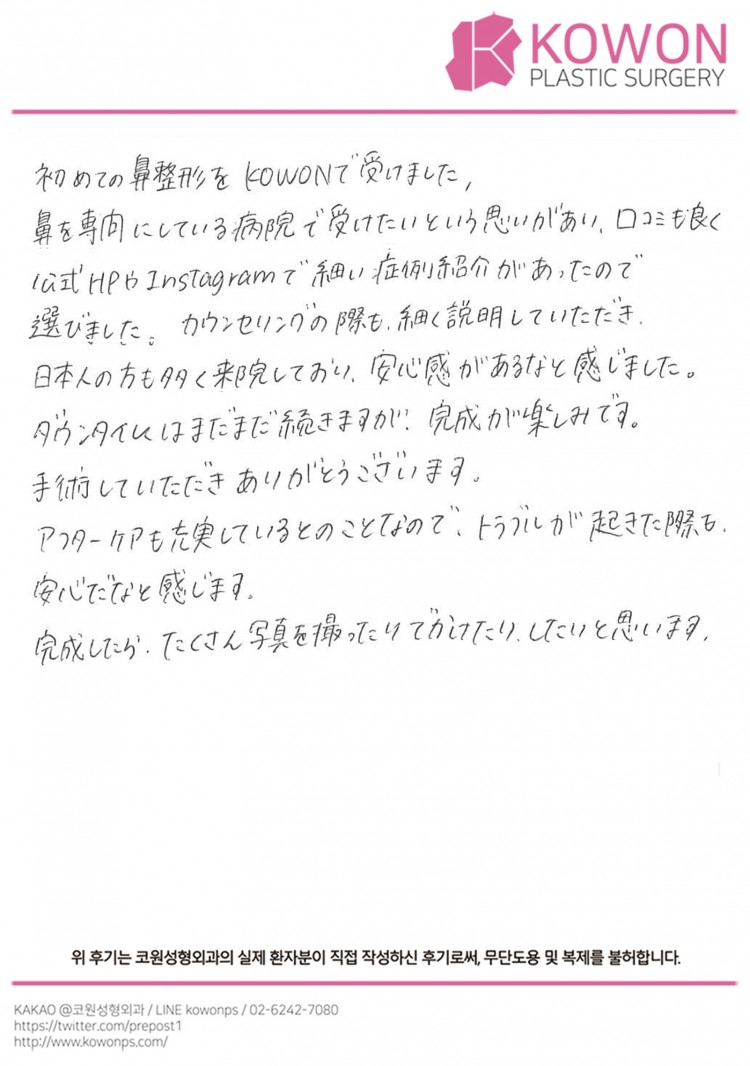 KOWON
PLASTIC SURGERY
初めての鼻整形をKOWONで受けました。
鼻を専門にしている病院で受けたいという思いがあり、口コミも良く
公式HPやInstagramで細い症例紹介があったので
選びました。カウンセリングの際も、細く説明していただき、
日本人の方も多く来院しており、安心感があるなと感じました。
ダウンタイムはまだまだ続きますが、完成が楽しみです。
手術していただきありがとうございます。
アフターケアも充実しているとのことなので、トラブルが起きた際も、
安心だなと感じます。
完成したら、たくさん写真を撮ったりでかけたり、したいと思います。
위 후기는 코원성형외과의 실제 환자분이 직접 작성하신 후기로써, 무단도용 및 복제를 불허합니다.
KAKAO @코원성형외과 / LINE kowonps / 02-6242-7080
https://twitter.com/prepost1
http://www.kowonps.com/